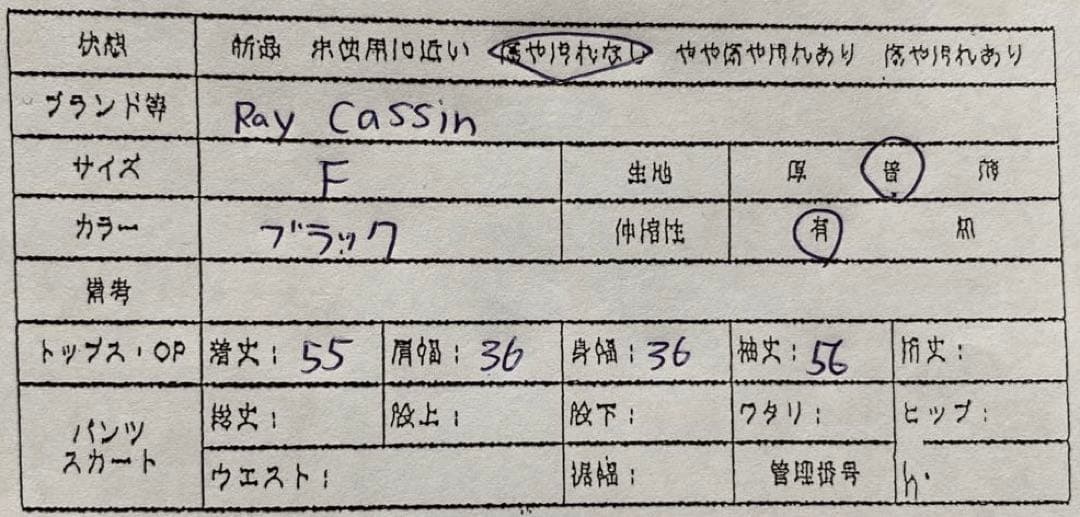 状態 新品 未使用に近い 傷や汚れなし やや傷や汚れあり 傷や汚れあり
ブランド等 Ray Cassin
サイズ F 生地 厚 普 薄
カラー ブラック 伸縮性 有 無
備考
トップス・OP 着丈: 55 肩幅: 36 身幅: 36 袖丈: 56 裄丈:
パンツ スカート 総丈: 股上: 股下: ワタリ: ヒップ:
ウエスト: 裾幅: 管理番号